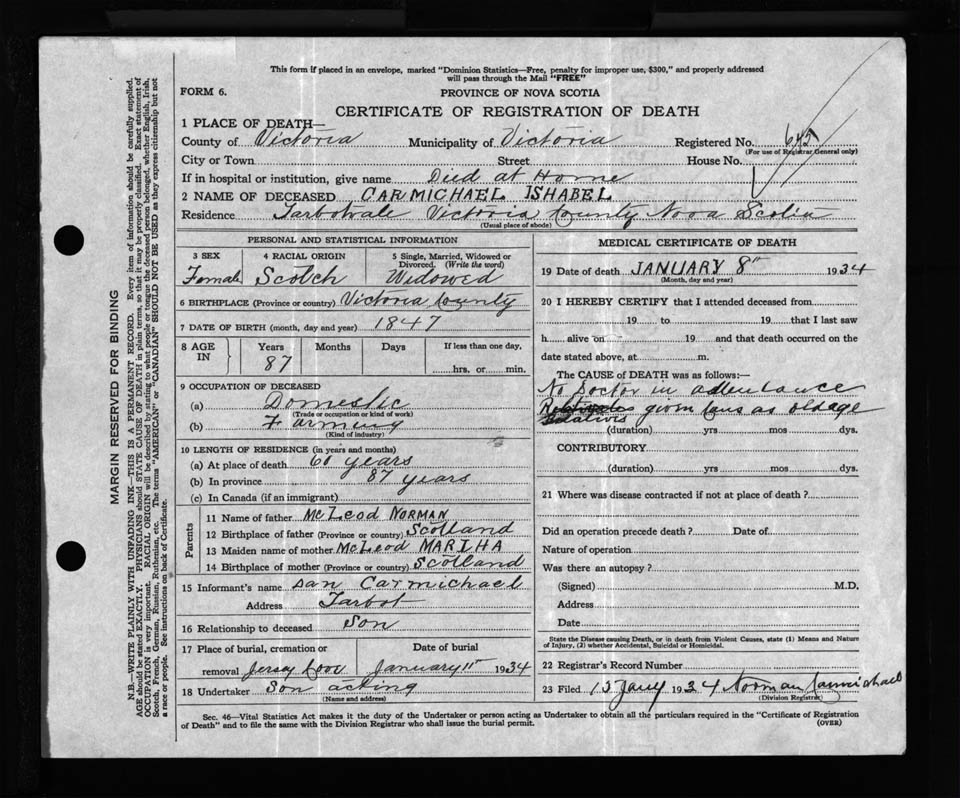 This form if placed in an envelope, marked "Dominion Statistics—Free, penalty for improper use, $300," and properly addressed
will pass through the Mail "FREE"
FORM 6.
PROVINCE OF NOVA SCOTIA
CERTIFICATE OF REGISTRATION OF DEATH
1 PLACE OF DEATH—
County of Victoria Municipality of Victoria Registered No.
(For use of Registrar General only)
City or Town Street House No.
If in hospital or institution, give name Died at Home
2 NAME OF DECEASED CARMICHAEL ISHABEL
Residence Tarbotvale Victoria County Nova Scotia
(Usual place of abode)
PERSONAL AND STATISTICAL INFORMATION
3 SEX 4 RACIAL ORIGIN 5 Single, Married, Widowed or
Divorced. (Write the word)
Female Scotch Widowed
6 BIRTHPLACE (Province or country) Victoria County
7 DATE OF BIRTH (month, day and year) 1847
8 AGE IN Years Months Days If less than one day,
87 hrs. or min.
9 OCCUPATION OF DECEASED
(a) Domestic
(Trade or occupation or kind of work)
(b) Farming
(Kind of industry)
10 LENGTH OF RESIDENCE (in years and months)
(a) At place of death 60 years
(b) In province 87 years
(c) In Canada (if an immigrant)
Parents
11 Name of father McLeod NORMAN
12 Birthplace of father (Province or country) Scotland
13 Maiden name of mother McLeod MARTHA
14 Birthplace of mother (Province or country) Scotland
15 Informant's name Dan Carmichael
Address Tarbot
16 Relationship to deceased Son
17 Place of burial, cremation or Date of burial
removal Jersey Cove January 11" 1934
18 Undertaker Son acting
(Name and address)
MEDICAL CERTIFICATE OF DEATH
19 Date of death JANUARY 8" 1934
(Month, day and year)
20 I HEREBY CERTIFY that I attended deceased from
19 to 19 that I last saw
h alive on 19 and that death occurred on the
date stated above, at m.
The CAUSE of DEATH was as follows:—
No Doctor in attendance
given cause as oldage
(duration) yrs mos dys.
CONTRIBUTORY
(duration) yrs mos dys.
21 Where was disease contracted if not at place of death?
Did an operation precede death? Date of
Nature of operation
Was there an autopsy?
(Signed) M.D.
Address
Date
State the Disease causing Death, or in death from Violent Causes, state (1) Means and Nature
of Injury, (2) whether Accidental, Suicidal or Homicidal.
22 Registrar's Record Number
23 Filed 15 Jany 1934 Norman Carmichael
(Division Registrar)
Sec. 46—Vital Statistics Act makes it the duty of the Undertaker or person acting as Undertaker to obtain all the particulars required in the "Certificate of Registration
of Death" and to file the same with the Division Registrar who shall issue the burial permit. (OVER)
MARGIN RESERVED FOR BINDING
N.B.—WRITE PLAINLY WITH UNFADING INK—THIS IS A PERMANENT RECORD. Every item of information should be carefully supplied.
AGE should be stated EXACTLY. PHYSICIANS should STATE CAUSE OF DEATH in plain terms, so that it may be properly classified. Exact statement of
OCCUPATION is very important. RACIAL ORIGIN will be described by stating to what people or tongue the deceased person belonged, whether English, Irish,
Scotch, French, German, Russian, Ruthenian, etc. The terms "AMERICAN" or "CANADIAN" SHOULD NOT BE USED as they express citizenship but not
a race or people. See instructions on back of Certificate.